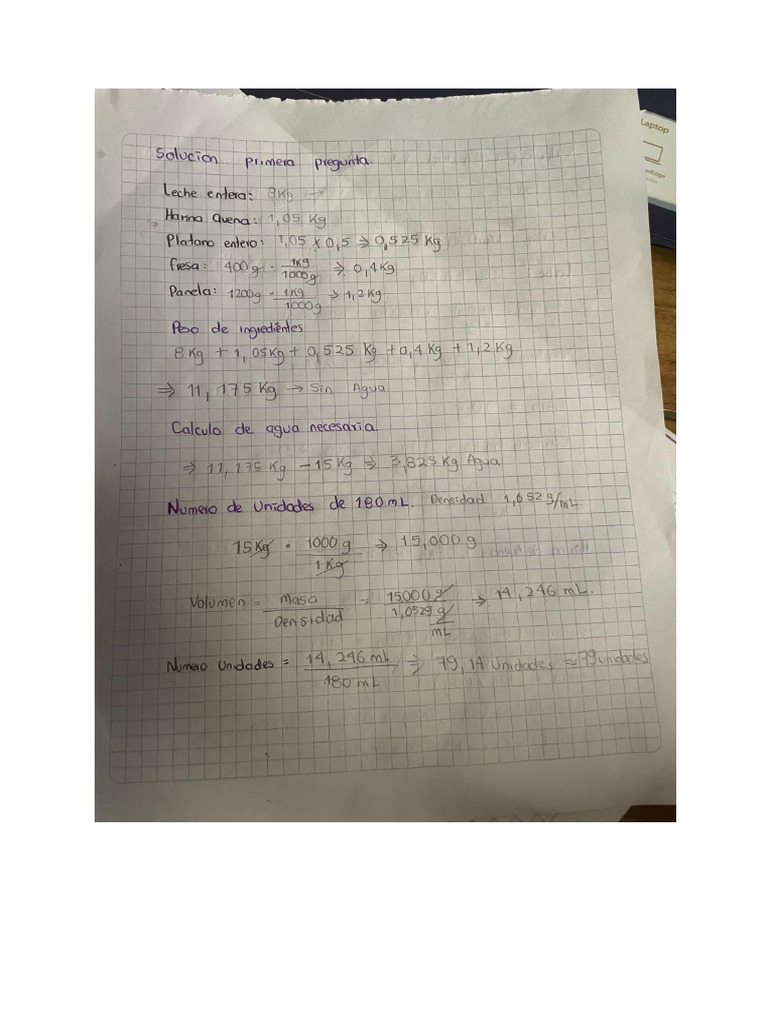 Solucion primera pregunta.
Leche entera: 8Kg →
Harina Avena: 1,05 Kg
Platano entero: 1,05 x 0,5 ⇒ 0,525 Kg
fresa: 400 g · 1Kg / 1000g ⇒ 0,4Kg
Panela: 1200g · 1Kg / 1000g → 1,2Kg
Peso de ingredientes
8Kg + 1,05Kg + 0,525 Kg + 0,4 Kg + 1,2Kg
⇒ 11,175Kg → Sin Agua
Calculo de agua necesaria.
⇒ 11,175 Kg - 15Kg ⇒ 3,825Kg Agua
Numero de Unidades de 180mL. Densidad 1,0529/mL.
15Kg · 1000 g / 1 Kg ⇒ 15,000 g
Volumen = Masa / Densidad = 15000 g / 1,0529 g/mL → 14,246 mL.
Numero Unidades = 14,246 mL / 180 mL ⇒ 79,14 Unidades ≈ 79 unidades
Laptop